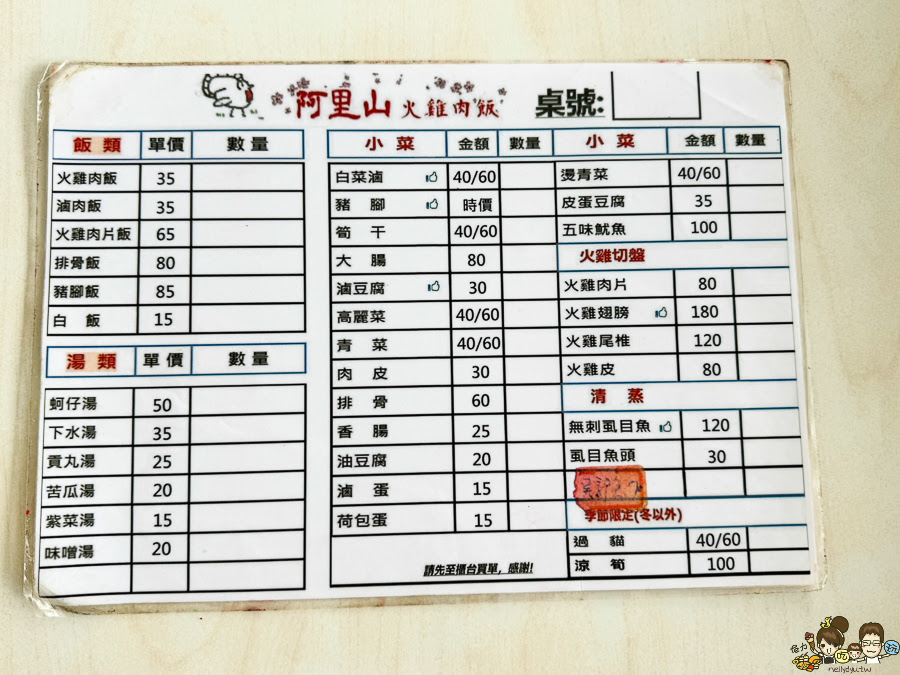 阿里山火雞肉飯 桌號:
飯類 單價 數量
火雞肉飯 35
滷肉飯 35
火雞肉片飯 65
排骨飯 80
豬腳飯 85
白飯 15
湯類 單價 數量
蚵仔湯 50
下水湯 35
貢丸湯 25
苦瓜湯 20
紫菜湯 15
味噌湯 20
小菜 金額 數量
白菜滷 40/60
豬腳 時價
筍干 40/60
大腸 80
滷豆腐 30
高麗菜 40/60
青菜 40/60
肉皮 30
排骨 60
香腸 25
油豆腐 20
滷蛋 15
荷包蛋 15
請先至櫃台買單，感謝!
小菜 金額 數量
燙青菜 40/60
皮蛋豆腐 35
五味魷魚 100
火雞切盤
火雞肉片 80
火雞翅膀 180
火雞尾椎 120
火雞皮 80
清蒸
無刺虱目魚 120
虱目魚頭 30
季節限定(冬以外)
過貓 40/60
涼筍 100